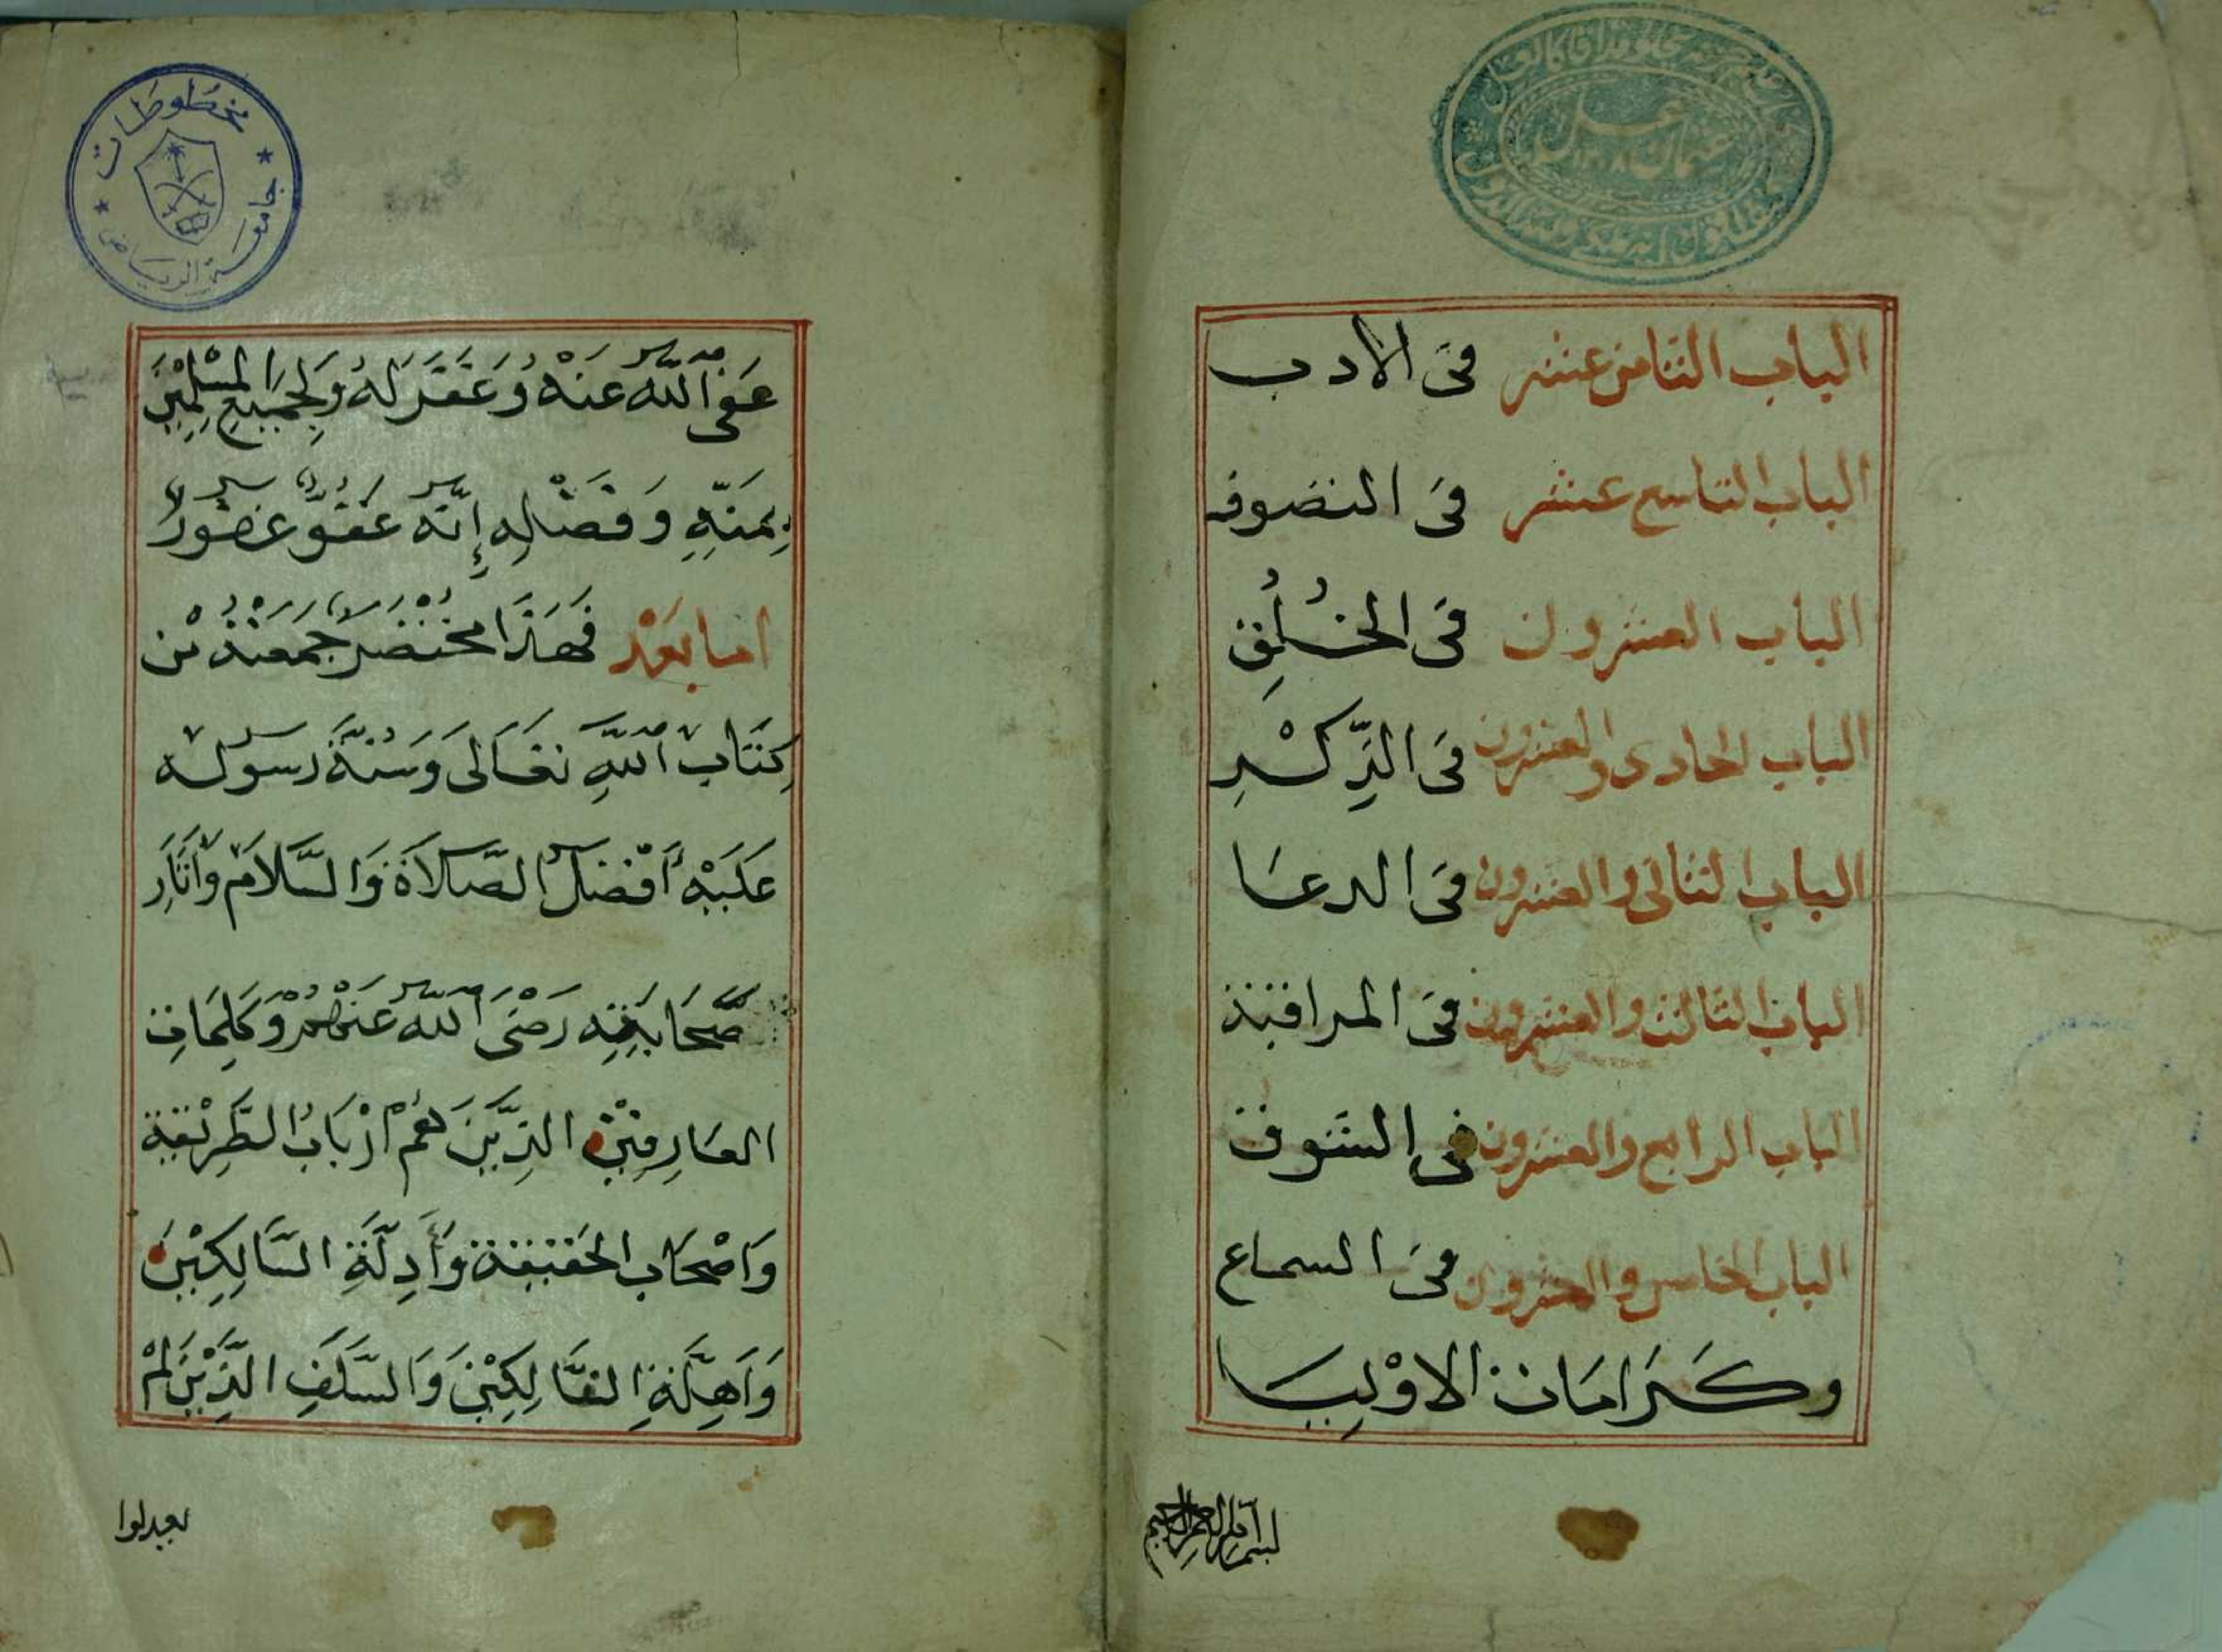 الباب الثامن عشر في الادب
الباب التاسع عشر في التصوف
الباب العشرون في الخُلُقِ
الباب الحادى والعشرون في الذِّكْرِ
الباب الثانى والعشرون في الدعا
الباب الثالث والعشرون في المراقبة
الباب الرابع والعشرون في الشوق
الباب الخامس والعشرون في السماع
وكَرَامَات الاوْلِيَا
بسم الله الرحمن الرحيم
مخطوطات
جامعة الرياض
عَفَى اللّٰهُ عَنْهُ وَغَفَرَ لَهُ وَلِجَمِيعِ المُسْلِمِيْنَ
بِمَنِّهِ وَفَضْلِهِ إِنَّهُ عَفُوٌّ غَفُورٌ
امَا بَعْد فَهَذَا مُخْتَصَرٌ جَمَعْتُهُ مْن
كِتَابِ اللّٰهِ تَعَالَى وَسُنَّةِ رَسُولِهِ
عَلَيْهِ أَفْضَلُ الصَّلَاةَ وَالسَّلَام وَأَثَارِ
صَحَابَتِهِ رَضِىَ اللّٰهُ عَنْهُمْ وَكَلِمَاتِ
العَارِفِيْنَ الذِّيْنَ هُمْ ارْبَابُ الطَّرِيْقَةِ
وَاصْحَاب الحَقيقَة وَأَدِلَّةِ السَّالِكِيْنَ
وَاَهِلَّةِ الفَالِكِيْنَ وَالسَّلَفِ الذَّيْنَ لَمْ
يبدلوا